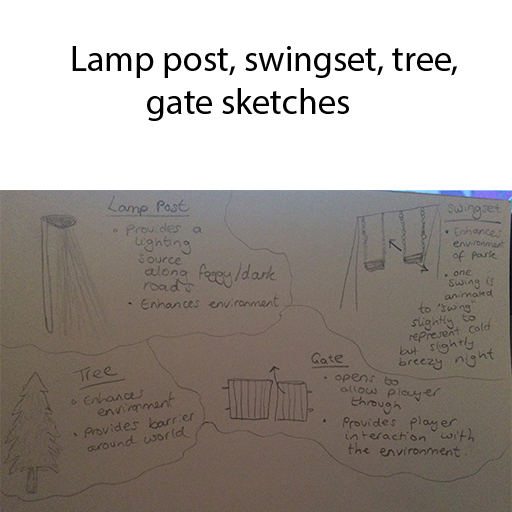 Lamp post, swingset, tree,
gate sketches
Lamp Post
• Provides a
lighting
source
along foggy/dark
roads
• Enhances environment
Swingset
• Enhances
environment
of park
• one
swing is
animated
to "swing"
slightly to
represent cold
but slightly
breezy night
Tree
• Enhances
environment
• Provides barrier
around world
Gate
• opens to
allow player
through
• Provides player
interaction with
the environment.